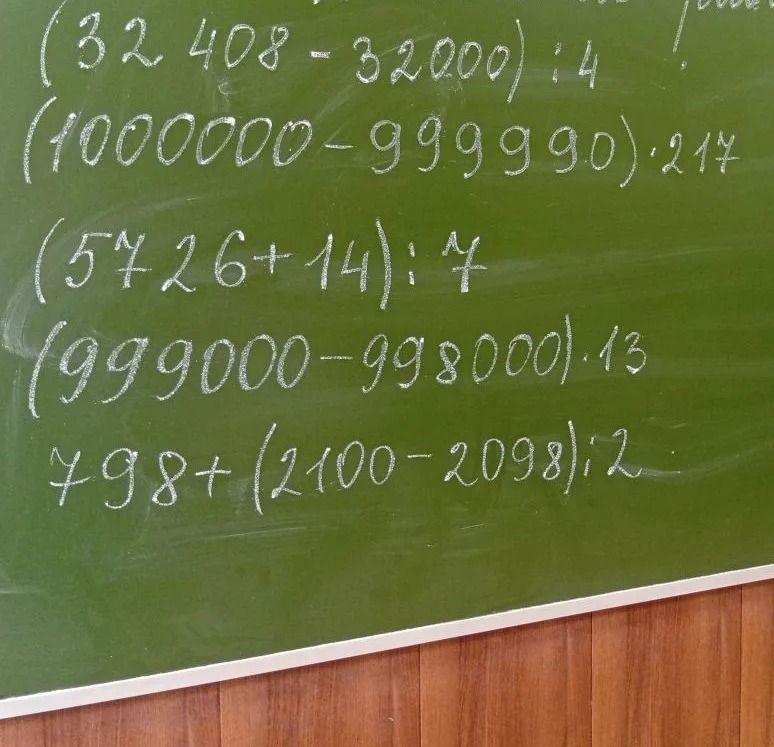 (32 408 - 32000) : 4
(1000000 - 999990) · 217
(5726 + 14) : 7
(999000 - 998000) · 13
798 + (2100 - 2098) : 2